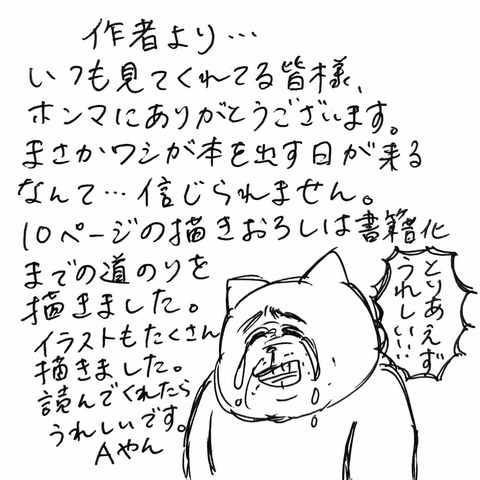 作者より…
いつも見てくれてる皆様、
ホンマにありがとうございます。
まさかワシが本を出す日が来る
なんて…信じられません。
10ページの描きおろしは書籍化
までの道のりを
描きました。
イラストもたくさん
描きました。
読んでくれたら
うれしいです。
Aやん
とりあえず
うれしい…!